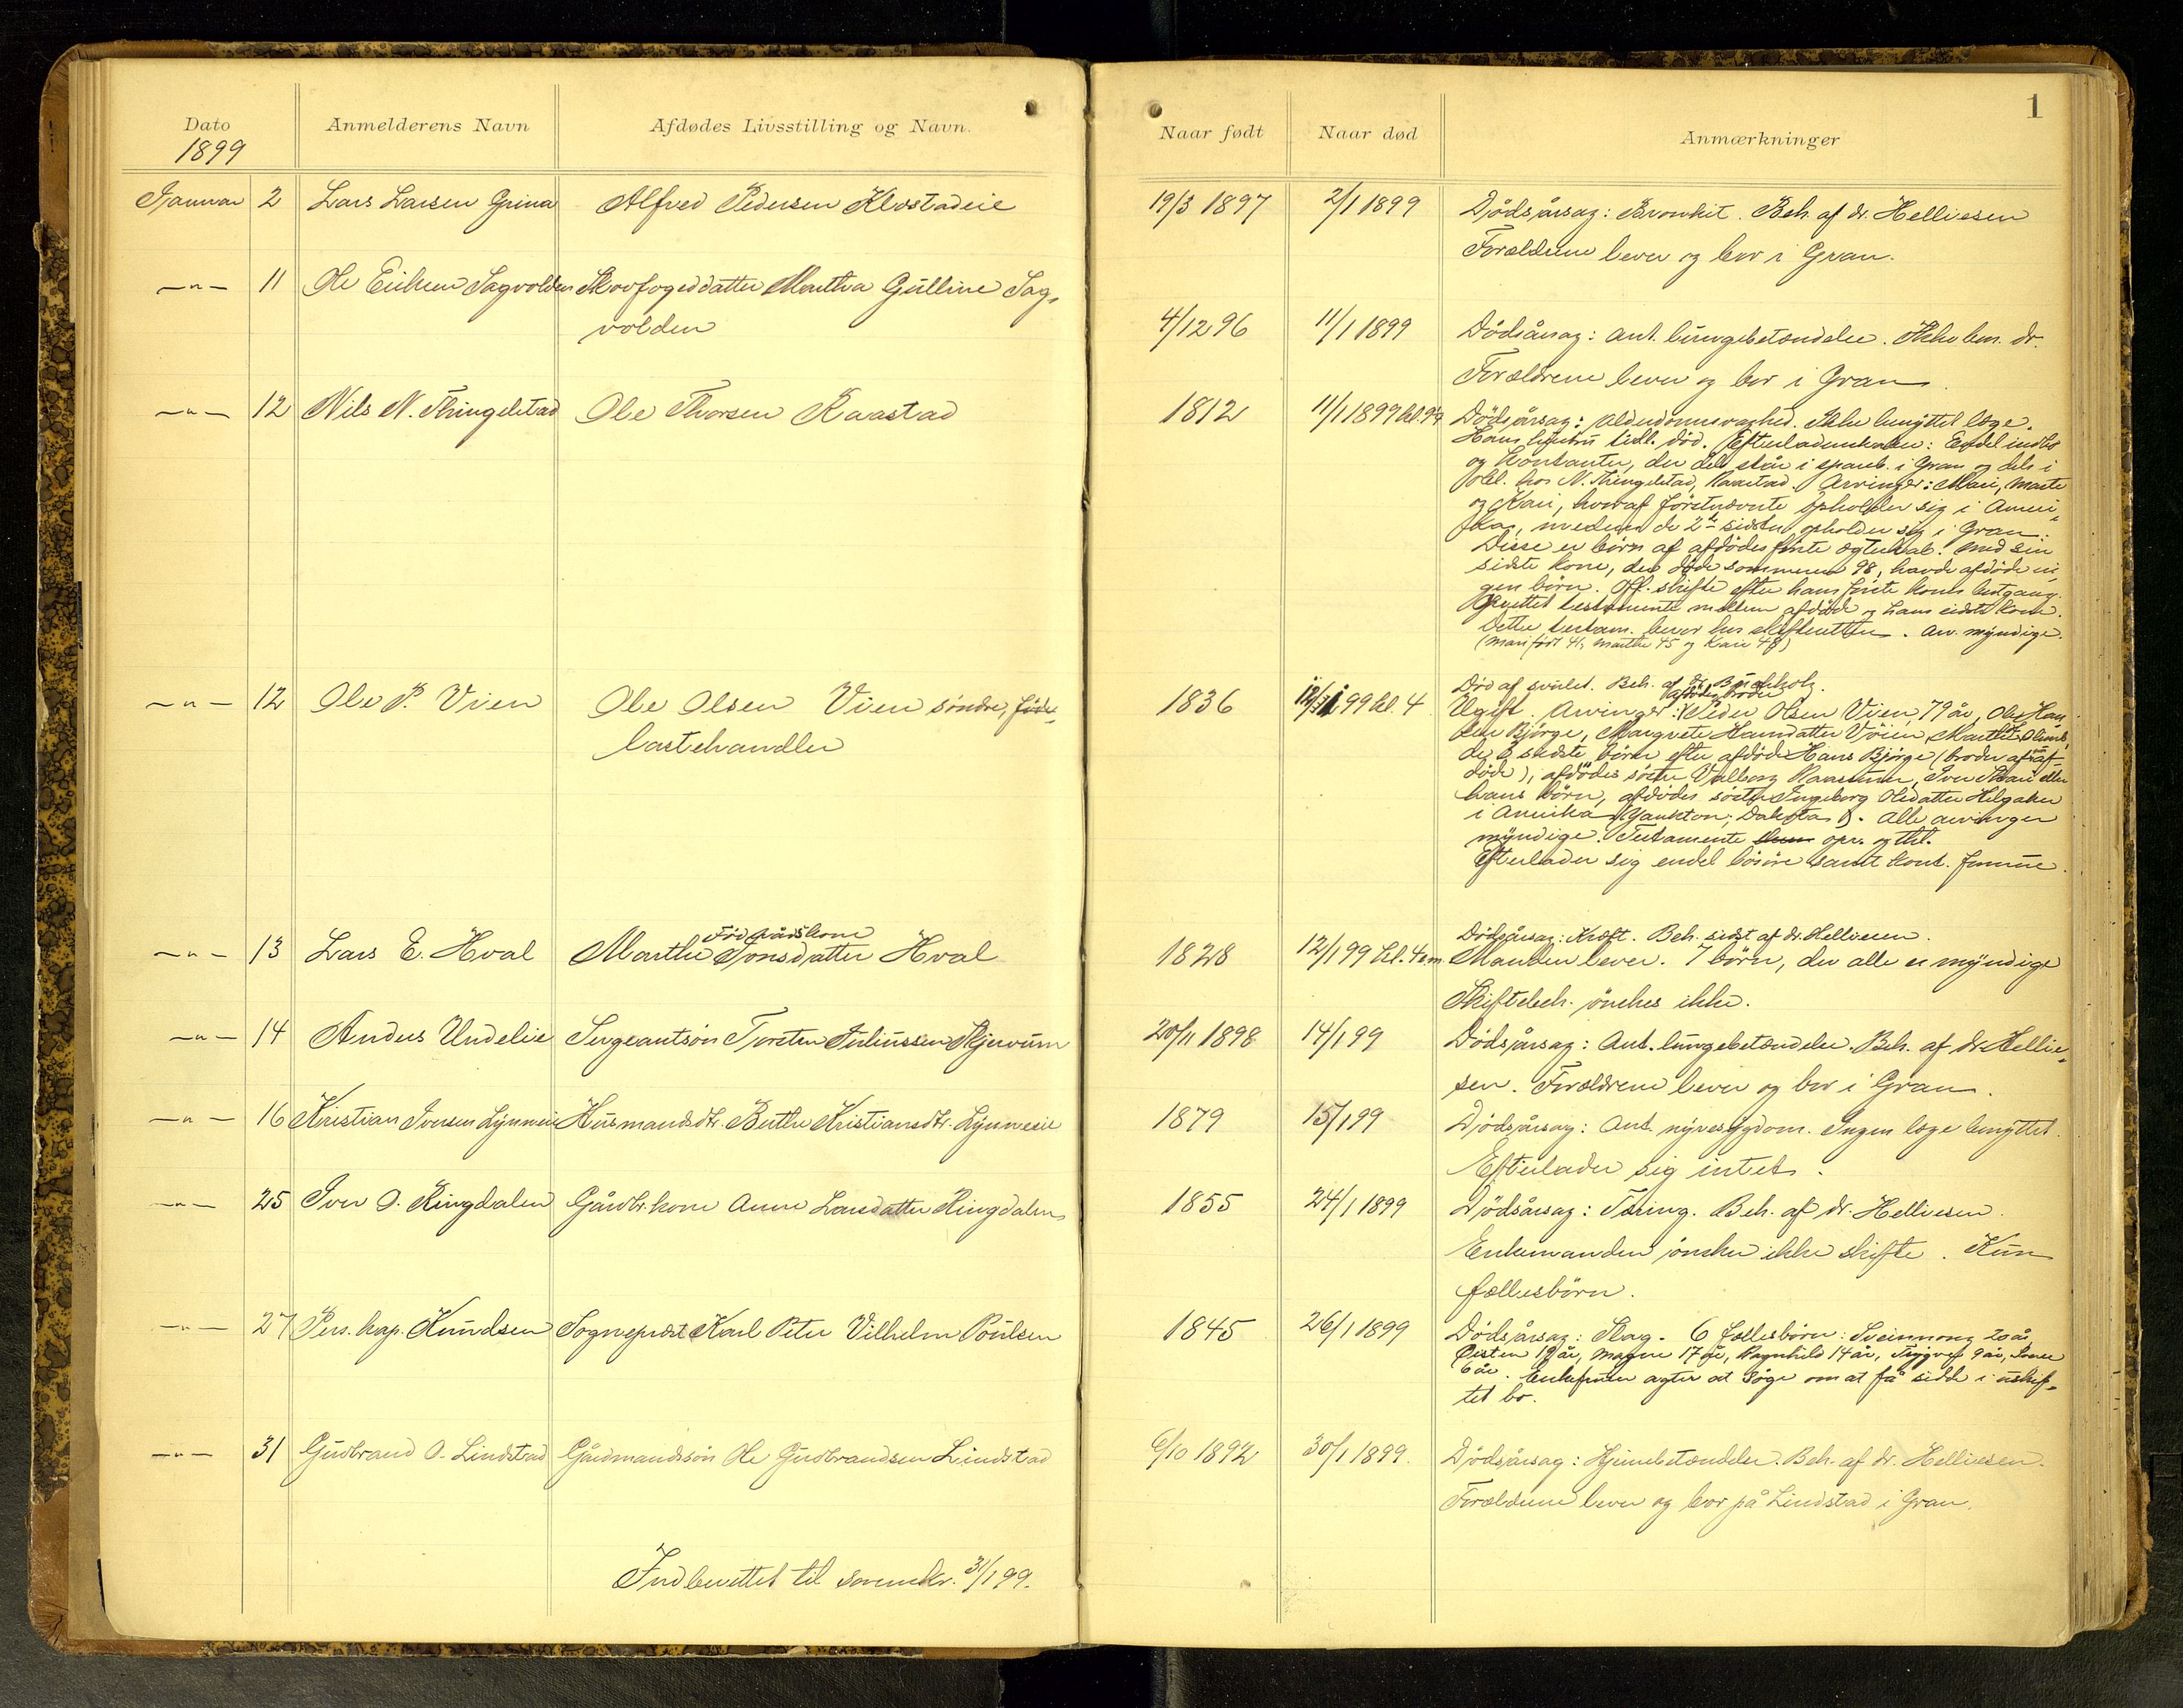 1
Dato Anmelderens Navn Afdødes Livsstilling og Navn. Naar født Naar død Anmærkninger
1899
Januar 2 Lars Larsen Grina Alfred Pedersen Klostadeie 19/3 1897 2/1 1899 Dødsårsag: Bronkit. Beh. af dr. Helliesen
Forældrene lever og bor i Gran.
—"— 11 Ole Eriksen Sagvolden Skovfogeddatter Martha Gulline Sag-
volden 4/12 96 11/1 1899 Dødsårsag: Ant. lungebetændelse. Ikke ben. dr.
Forældrene lever og bor i Gran.
—"— 12 Nils N. Thingelstad Ole Thorsen Raastad 1812 11/1 1899 kl. Dødsårsag: Alderdomssvaghed. Ikke benyttet læge.
Hans hustru tidl. død. Efterladenskaber: Endel indbo
og kontanter, der dels står i spareb. i Gran og dels i
obl. hos N. Thingelstad, Raastad. Arvinger: Mari, Marte
og Kari, hvoraf førstnævnte opholder sig i Ameri-
ka, medens de 2de sidste opholder sig i Gran.
Disse er børn af afdødes første ægteskab. Med sin
sidste kone, der døde sommeren 98, havde afdøde in-
gen børn. Off. skifte efter hans første kones bortgang.
Oprettet testamente mellem afdøde og hans sidste kone.
Dette testam. beror hos skifteretten. Arv. myndige.
(Mari født 41, Marthe 45 og Kari 48)
—"— 12 Ole P. Vien Ole Olsen Vien søndre, føde-
1836 12/1 99 kl. 4 Død af svulst. Beh. af dr. Buchholz.
afdødes broder
Ugift. Arvinger: Peder Olsen Vien, 79 år, Ole Han-
sen Bjørge, Margrete Hansdatter Vøien, Marthe
de sidste børn efter afdøde Hans Bjørge (broder af af-
døde), afdødes søster Valborg Raassum, Iver eller
hans børn, afdødes søster Ingeborg Olsdatter Helgaker
i Amerika (Yankton, Dakota). Alle arvinger
myndige. Testamente opr. og tht.
Efterlader sig endel løsøre samt kont. formue.
—"— 13 Lars E. Hval Marthe Jonsdatter Hval 1828 12/1 99 kl. 4 em. Dødsårsag: Kræft. Beh. sidst af dr. Helliesen.
Manden lever. 7 børn, der alle er myndige
Skiftebeh. ønskes ikke.
—"— 14 Anders Undelie Sergeantsøn Torsten Juliussen Skjervum 20/11 1898 14/1 99 Dødsårsag: Ant. lungebetændelse. Beh. af dr. Hellie-
sen. Forældrene lever og bor i Gran.
—"— 16 Kristian Iversen Lynneeie Husmandsdtr. Berthe Kristiansdtr. Lynneeie 1879 15/1 99 Dødsårsag: Ant. nyresygdom. Ingen læge benyttet.
Efterlader sig intet.
—"— 25 Iver O. Ringdalen Gårdbr. kone Anne Larsdatter Ringdalen 1855 24/1 1899 Dødsårsag: Tæring. Beh. af dr. Helliesen.
Enkemanden ønsker ikke skifte. Kun
fællesbørn.
—"— 27 Pers. kap. Knudsen Sogneprest Karl Peter Vilhelm Poulsen 1845 26/1 1899 Dødsårsag: Slag. 6 fællesbørn: Sveinnong 20 år,
Øisten 19 år, Magne 17 år, Ragnhild 14 år, Trygve 9 år,
6 år. Enkefruen agter at søge om at få sidde i uskif-
tet bo.
—"— 31 Gudbrand O. Lindstad Gårdmandssøn Ole Gudbrandsen Lindstad 6/10 1892 30/1 1899. Dødsårsag: Hjernebetændelse. Beh. af dr. Helliesen.
Forældrene lever og bor på Lindstad i Gran.
Indberettet til sorenskr. 31/1 99.